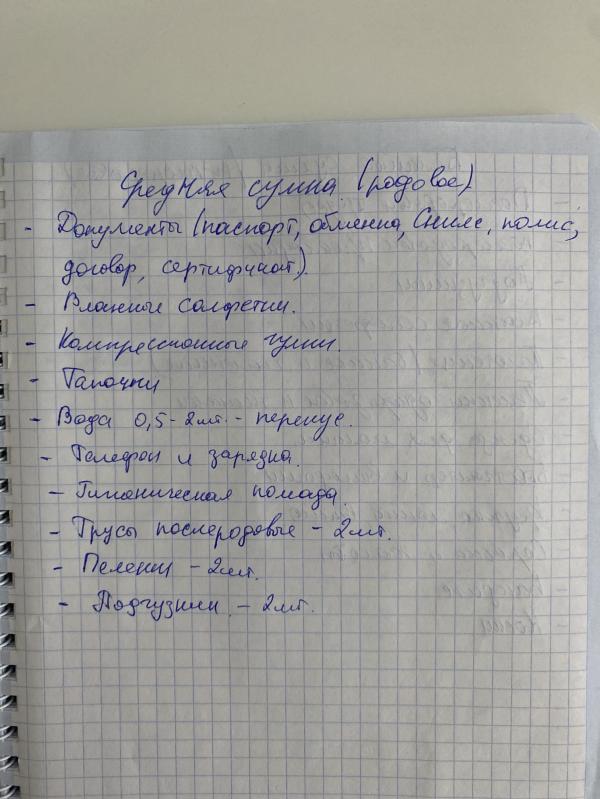 Средняя сумка (родовое)
- Документы (паспорт, обменка, Снилс, полис,
договор, сертификат).
- Влажные салфетки.
- Компрессионные чулки.
- Тапочки
- Вода 0,5 - 2шт. - перекус.
- Телефон и зарядка.
- Гигиеническая помада.
- Трусы послеродовые - 2шт.
- Пеленки - 2шт.
- Подгузники - 2шт.